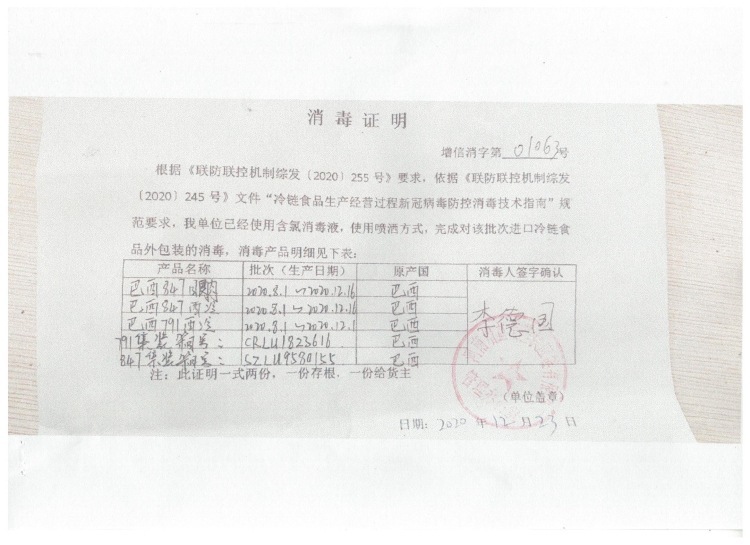 消毒证明
增信消字第 01063号
根据《联防联控机制综发〔2020〕255 号》要求，依据《联防联控机制综发
〔2020〕245 号》文件“冷链食品生产经营过程新冠病毒防控消毒技术指南”规
范要求，我单位已经使用含氯消毒液，使用喷洒方式，完成对该批次进口冷链食
品外包装的消毒，消毒产品明细见下表：
产品名称 批次（生产日期） 原产国 消毒人签字确认
巴西847 2020.8.1~2020.12.16 巴西
巴西847西冷 2020.8.1~2020.12.16 巴西
巴西791西冷 2020.8.1~2020.12.1 巴西
李德国
791集装箱号： CRLU1823616 巴西
847集装箱号： SZLU9580155 巴西
注：此证明一式两份，一份存根，一份给货主
（单位盖章）
日期：2020 年 12 月 23 日